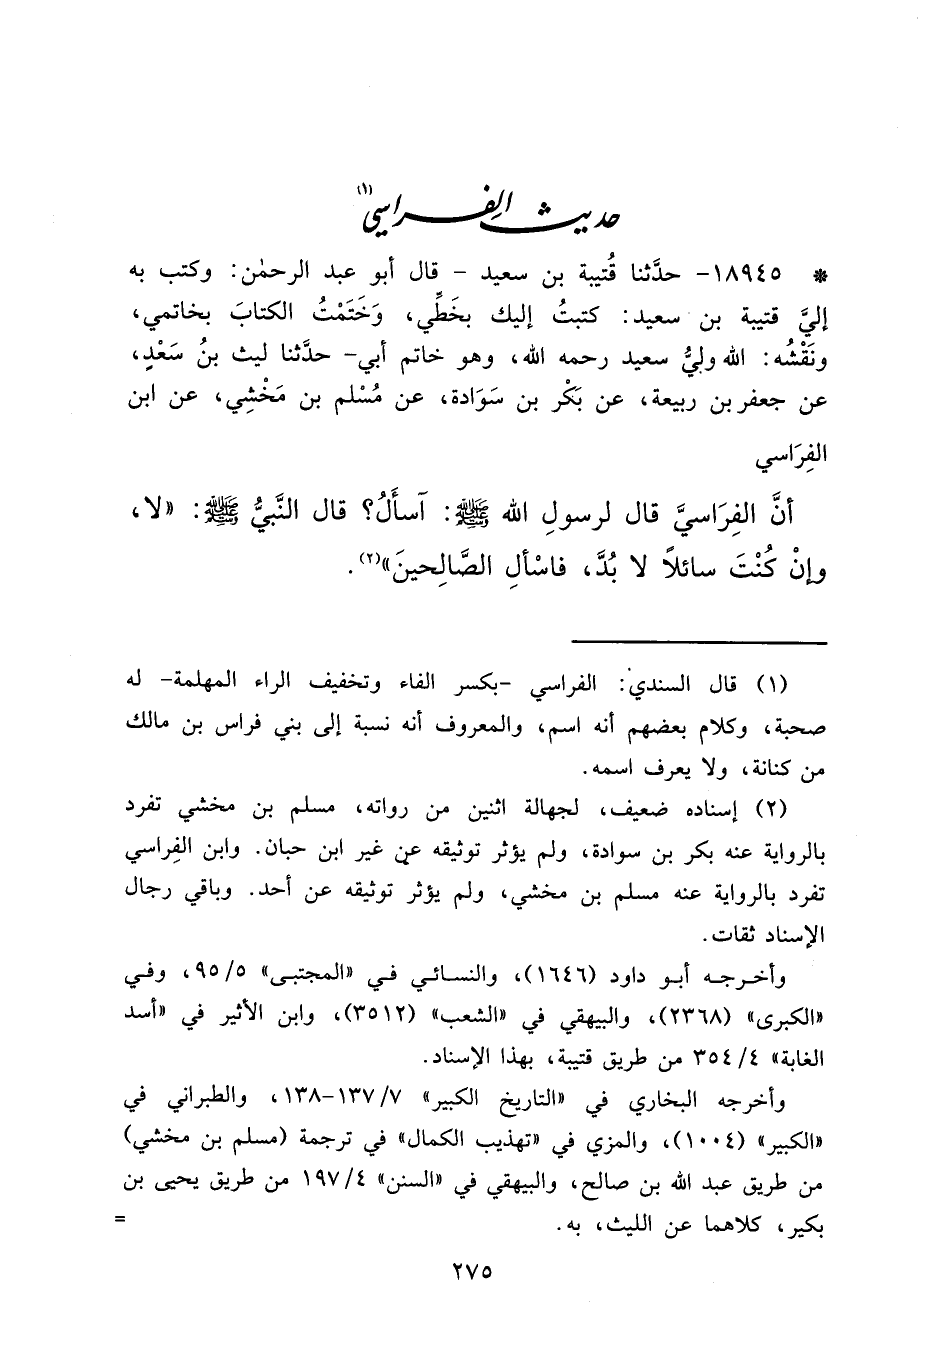 حديث الفراسي(١)
* ١٨٩٤٥- حدَّثنا قُتيبة بن سعيد - قال أبو عبد الرحمٰن: وكتب به
إليَّ قتيبة بن سعيد: كتبتُ إليك بخَطِّي، وَخَتَمْتُ الكتابَ بخاتمي،
ونَقْشُه: الله وليُّ سعيد رحمه الله، وهو خاتم أبي- حدَّثنا ليث بنُ سَعْدٍ،
عن جعفر بن ربيعة، عن بَكْر بن سَوَادة، عن مُسْلم بن مَخْشِي، عن ابن
الفِرَاسي
أنَّ الفِرَاسيَّ قال لرسولِ الله ﷺ: آسأَلُ؟ قال النَّبيُّ ﷺ: «لا،
وإنْ كُنْتَ سائلاً لا بُدَّ، فاسْألِ الصَّالِحينَ»(٢).
(١) قال السندي: الفراسي -بكسر الفاء وتخفيف الراء المهملة- له
صحبة، وكلام بعضهم أنه اسم، والمعروف أنه نسبة إلى بني فراس بن مالك
من كنانة، ولا يعرف اسمه.
(٢) إسناده ضعيف، لجهالة اثنين من رواته، مسلم بن مخشي تفرد
بالرواية عنه بكر بن سوادة، ولم يؤثر توثيقه عن غير ابن حبان. وابن الفِراسي
تفرد بالرواية عنه مسلم بن مخشي، ولم يؤثر توثيقه عن أحد. وباقي رجال
الإسناد ثقات.
وأخرجه أبو داود (١٦٤٦)، والنسائي في «المجتبى» ٩٥/٥، وفي
«الكبرى» (٢٣٦٨)، والبيهقي في «الشعب» (٣٥١٢)، وابن الأثير في «أسد
الغابة» ٣٥٤/٤ من طريق قتيبة، بهذا الإسناد.
وأخرجه البخاري في «التاريخ الكبير» ١٣٧/٧-١٣٨، والطبراني في
«الكبير» (١٠٠٤)، والمزي في «تهذيب الكمال» في ترجمة (مسلم بن مخشي)
من طريق عبد الله بن صالح، والبيهقي في «السنن» ١٩٧/٤ من طريق يحيى بن
بكير، كلاهما عن الليث، به. =
٢٧٥